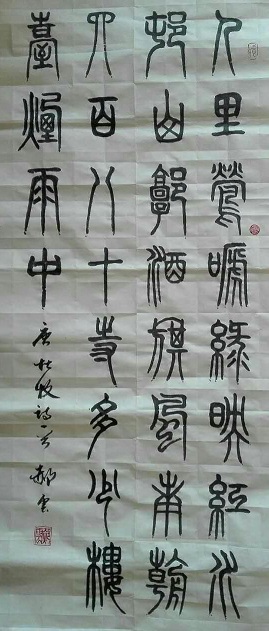 千里鶯嗁綠映紅水
邨山郭酒旗風南朝
四百八十寺多少樓
臺煙雨中 唐杜牧詩